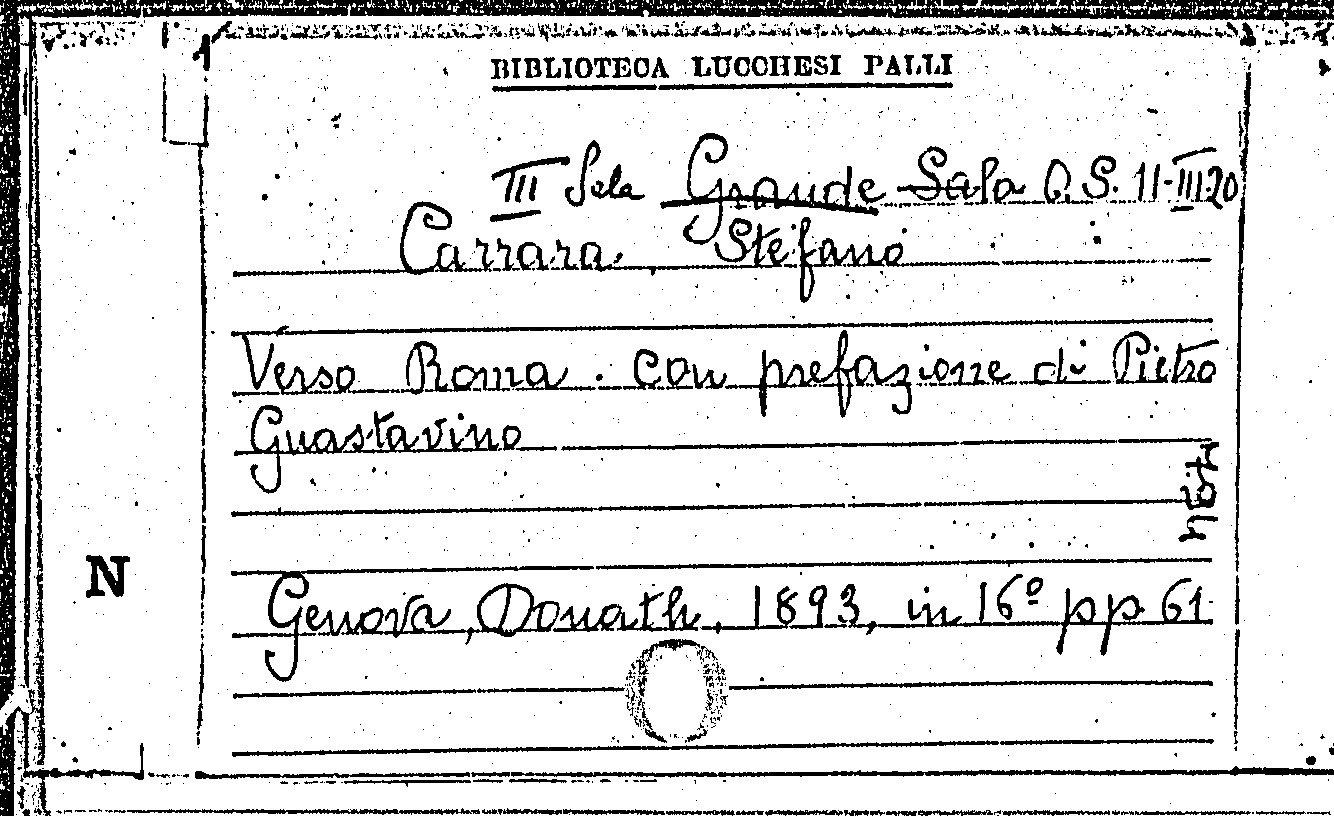 BIBLIOTECA LUCCHESI PALLI
III Sala Grande Sala Q. S. 11-III-20
Carrara, Stefano
Verso Roma. con prefazione di Pietro
Guastavino
N
Genova, Donath, 1893, in 16º pp 61